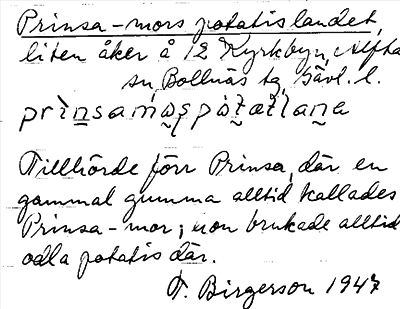 Prinsa-mors potatislandet,
liten åker å 12 Kyrkbyn, Alfta
sn, Bollnäs tg, Gävl. l.
prìnsamòșpàtatlana
Tillhörde förr Prinsa, där en
gammal gumma alltid kallades
Prinsa-mor; hon brukade alltid
odla potatis där.
T. Birgerson 1947